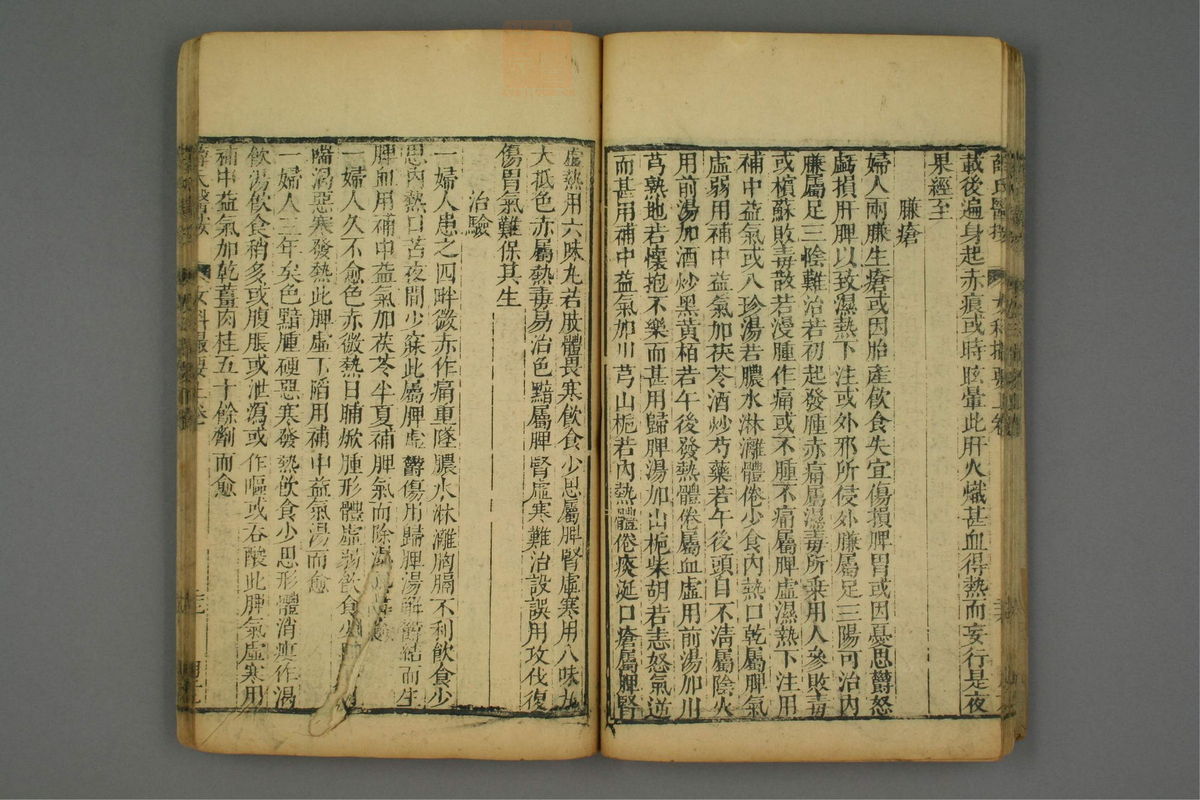 薛氏醫按 女科撮要上卷
載後遍身起赤痕或時眩暈此肝火熾甚血得熱而妄行是夜
果經至
臁瘡
婦人兩臁生瘡或因胎產飲食失宜傷損脾胃或因憂思鬱怒
虧損肝脾以致濕熱下注或外邪所侵外臁屬足三陽可治內
臁屬足三陰難治若初起發腫赤痛屬濕毒所乗用人參敗毒
或檳蘇敗毒散若漫腫作痛或不腫不痛屬脾虛濕熱下注用
補中益氣或八珍湯若膿水淋灕體倦少食內熱口乾屬脾氣
虛弱用補中益氣加茯苓酒炒芍藥若午後頭目不清屬陰火
用前湯加酒炒黑黃栢若午後發熱體倦屬血虛用前湯加川
芎熟地若懷抱不樂而甚用歸脾湯加山梔柴胡若恚怒氣逆
而甚用補中益氣加川芎山梔若內熱體倦痰涎口瘡屬脾腎
虛熱用六味丸若肢體畏寒飲食少思屬脾腎虛寒用八味丸
大抵色赤屬熱毒易治色黯屬脾腎虛寒難治設誤用攻伐復
傷胃氣難保其生
治驗
一婦人患之四畔微赤作痛重墜膿水淋灕胸膈不利飲食少
思內熱口苦夜間少寐此屬脾虛鬱傷用歸脾湯解鬱結而生
脾血用補中益氣加茯苓半夏補脾氣而除濕
一婦人久不愈色赤微熱日晡焮腫形體虛弱飲食少
喘渴惡寒發熱此脾虛下陷用補中益氣湯而愈
一婦人三年矣色黯腫硬惡寒發熱飲食少思形體消瘦作渴
飲湯飲食稍多或腹脹或泄瀉或作嘔或吞酸此脾氣虛寒用
補中益氣加乾薑肉桂五十餘劑而愈
薛氏醫按 女科撮要上卷